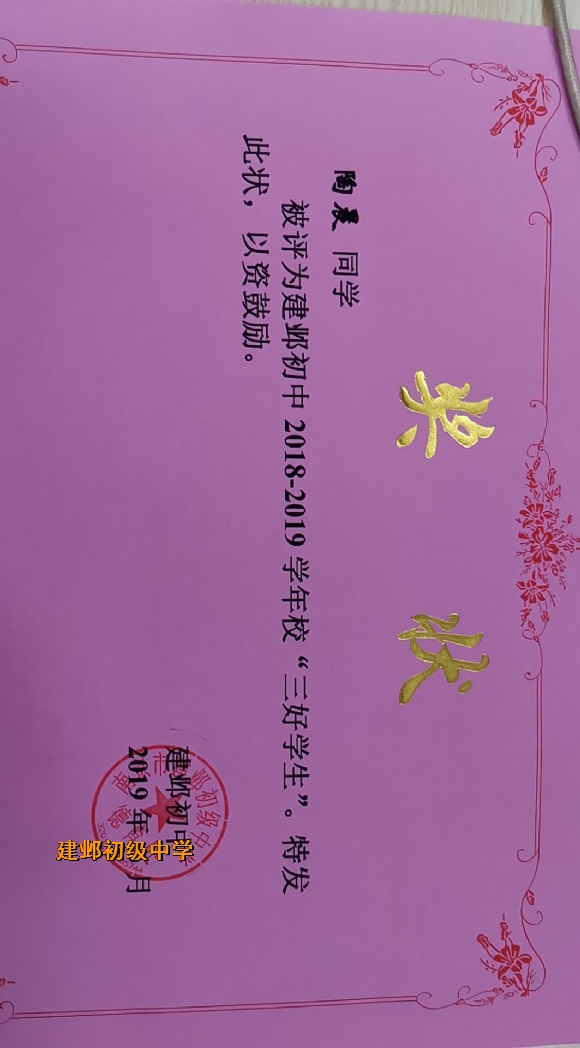 奖状
陶晨 同学
被评为建邺初中 2018-2019 学年校“三好学生”。特发
此状，以资鼓励。
建邺初中
2019年 月
建邺初级中学